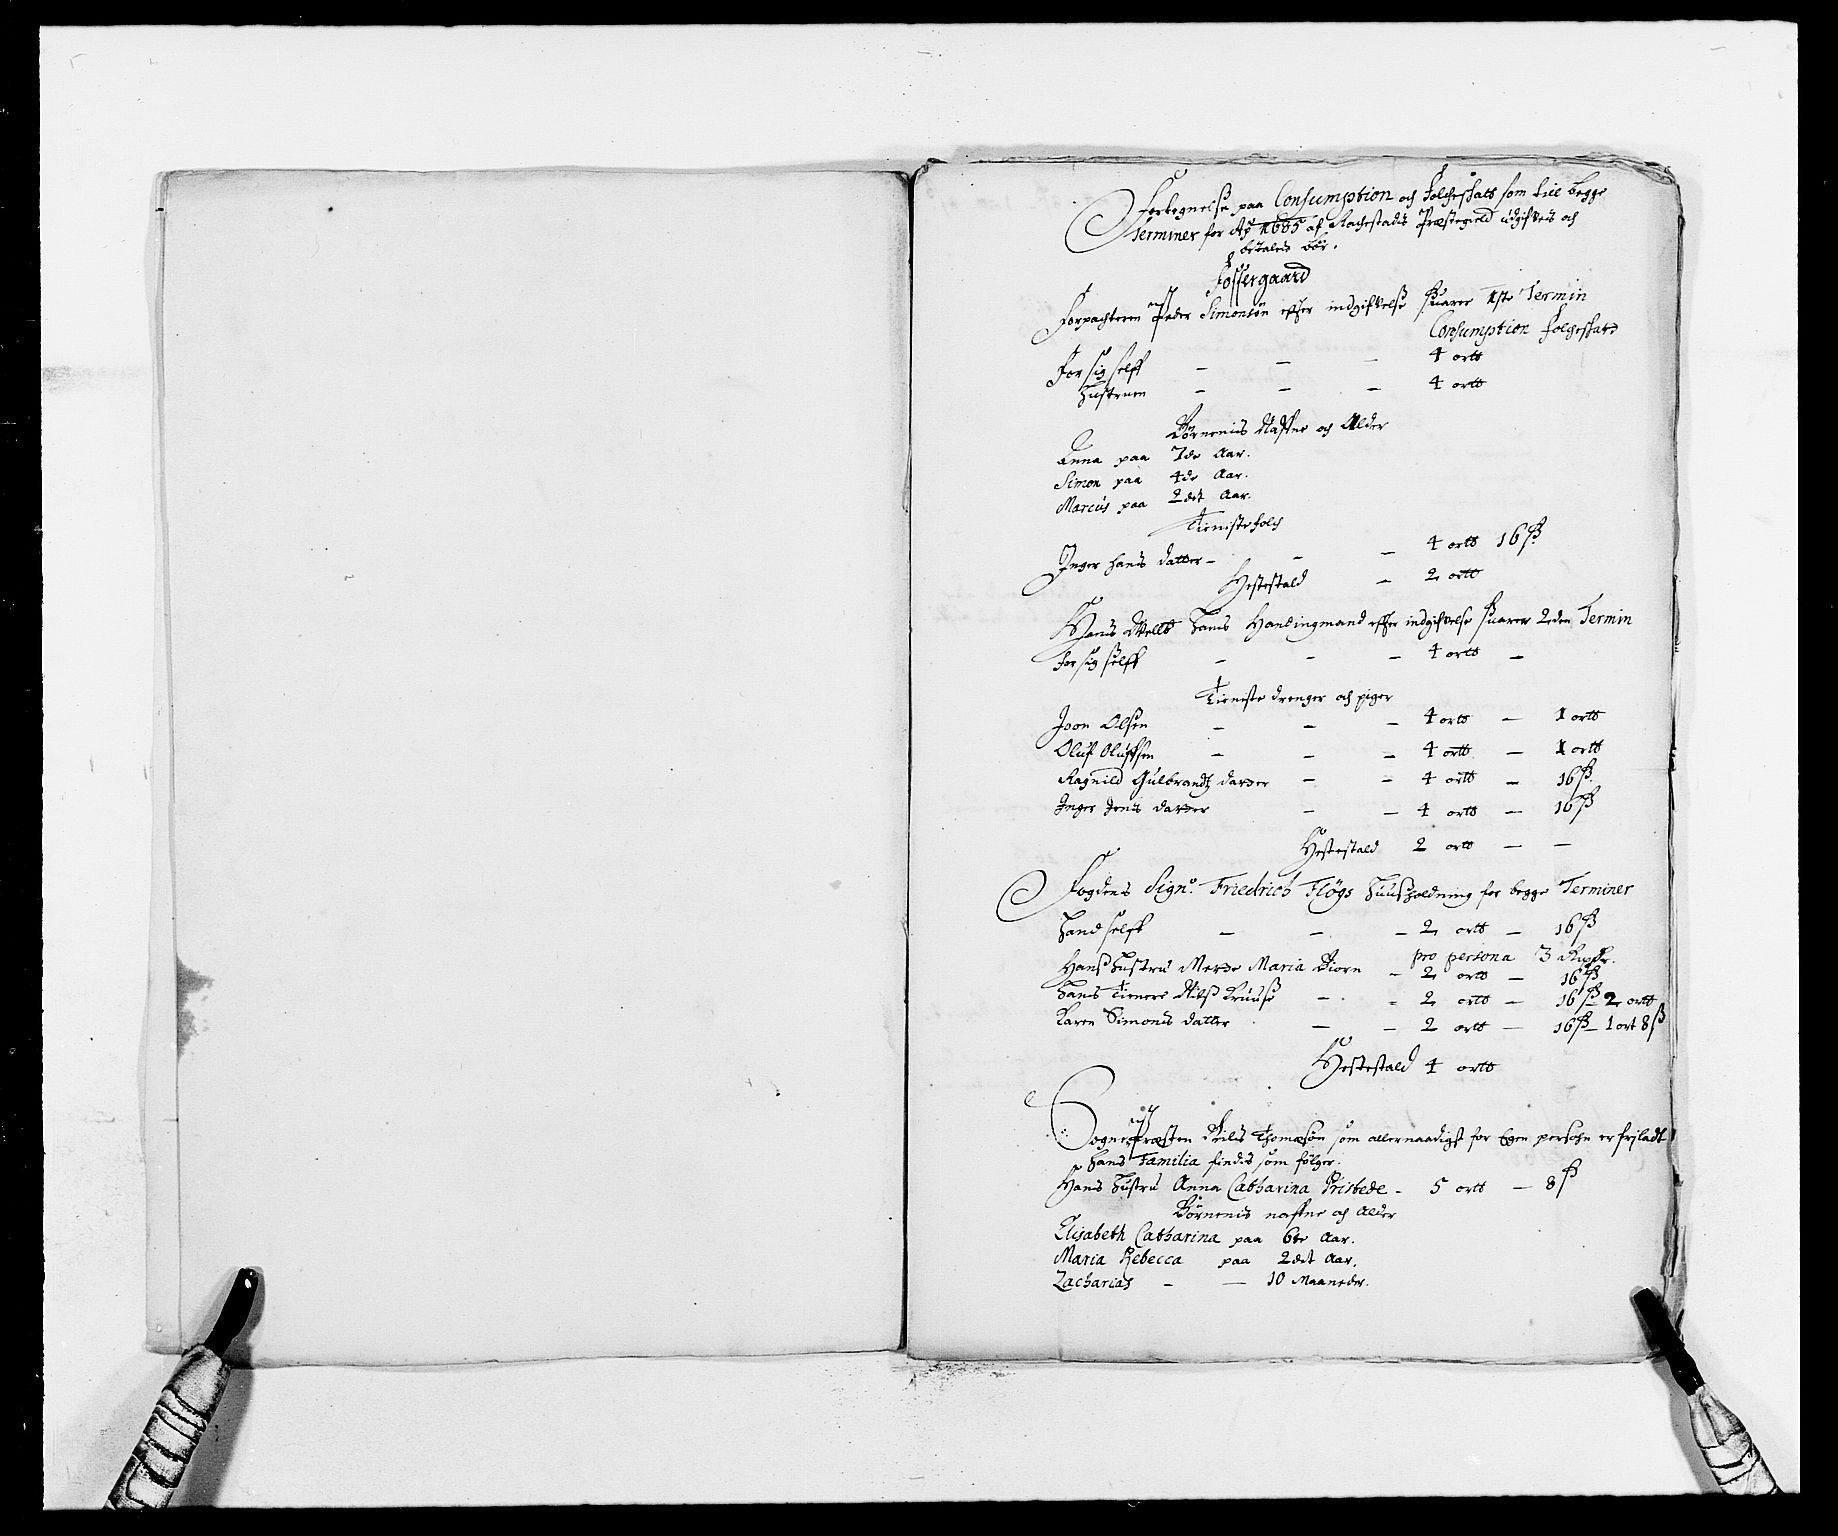 Fortegnelse paa Consumption och Folcheskatt som till begge
Terminer for Aõ 1685 af Rachestads Præstegield udgifves och
betales bør.
Fossergaard
Forpachteren Peder Simonsøn effter indgifvelse suarer 1ste Termin
Consumption folgeskatt
For sig self - - - 4 ortt
Hustruen - - - 4 ortt
Børnenis Naffne och Alder
Anna paa 7de Aar.
Simon paa 4de Aar.
Marcus paa 2det Aar.
Tienistefolch
Inger Hans datter - - - 4 ortt 16 ß
Hestestald - 2 ortt
Hans Handingmand effter indgifvelse suarer 2den Termin
For sig selff - - - 4 ortt -
Tieniste drenger och piger
Joon Olsen - - - 4 ortt - 1 ortt
Oluf Oluffsen - - - 4 ortt - 1 ortt
Ragnild Gulbrandtz datter - - 4 ortt - 16 ß
Inger Jens datter - - 4 ortt - 16 ß
Hestestald 2 ortt - -
Fogdens Signr. Friedrich Fløgs Huusholdning for begge Terminer
Hand selff - - - 2 ortt - 16 ß
pro persona 3 Rixdr.
Hans Hustru Mette Maria Biorn - 2 ortt - 16 ß
Hans Tienere Nilss Kruuse - - 2 ortt - 16 ß 2 ortt
Karen Simons datter - - 2 ortt - 16 ß - 1 ort 8 ß
Hestestald 4 ortt
SognePræsten Thomæsøn som allernaadigst for Egen persohn er frjladt
Hans Familia findes som følger.
Hans Hustru Anna Catharina Pristede - 5 ortt - 8 ß
Børnenis naffne och Alder
Elisabeth Catharina paa 6te Aar.
Maria Rebecca paa 2det Aar.
Zacharias - - 10 Maaneder.